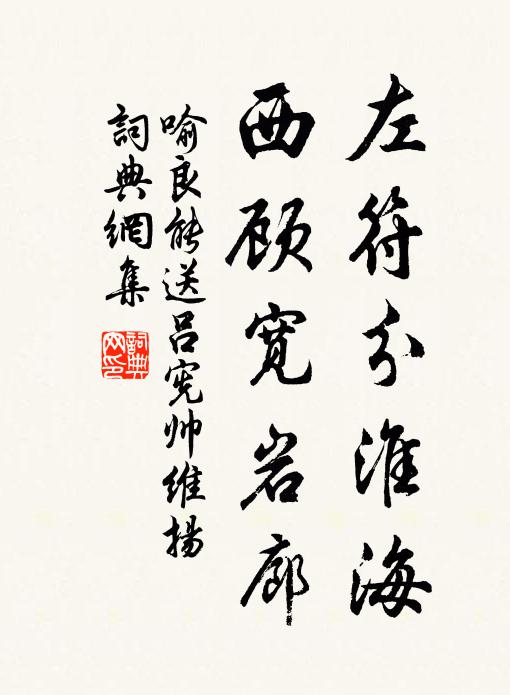 左符分淮海
西顾宽岩廊
喻良能送吕宪帅维扬
詞典網集
詞典網印